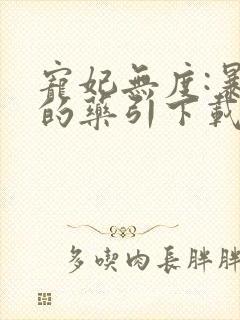 寵妃無度:暴
的藥引下載
多喫肉長胖胖